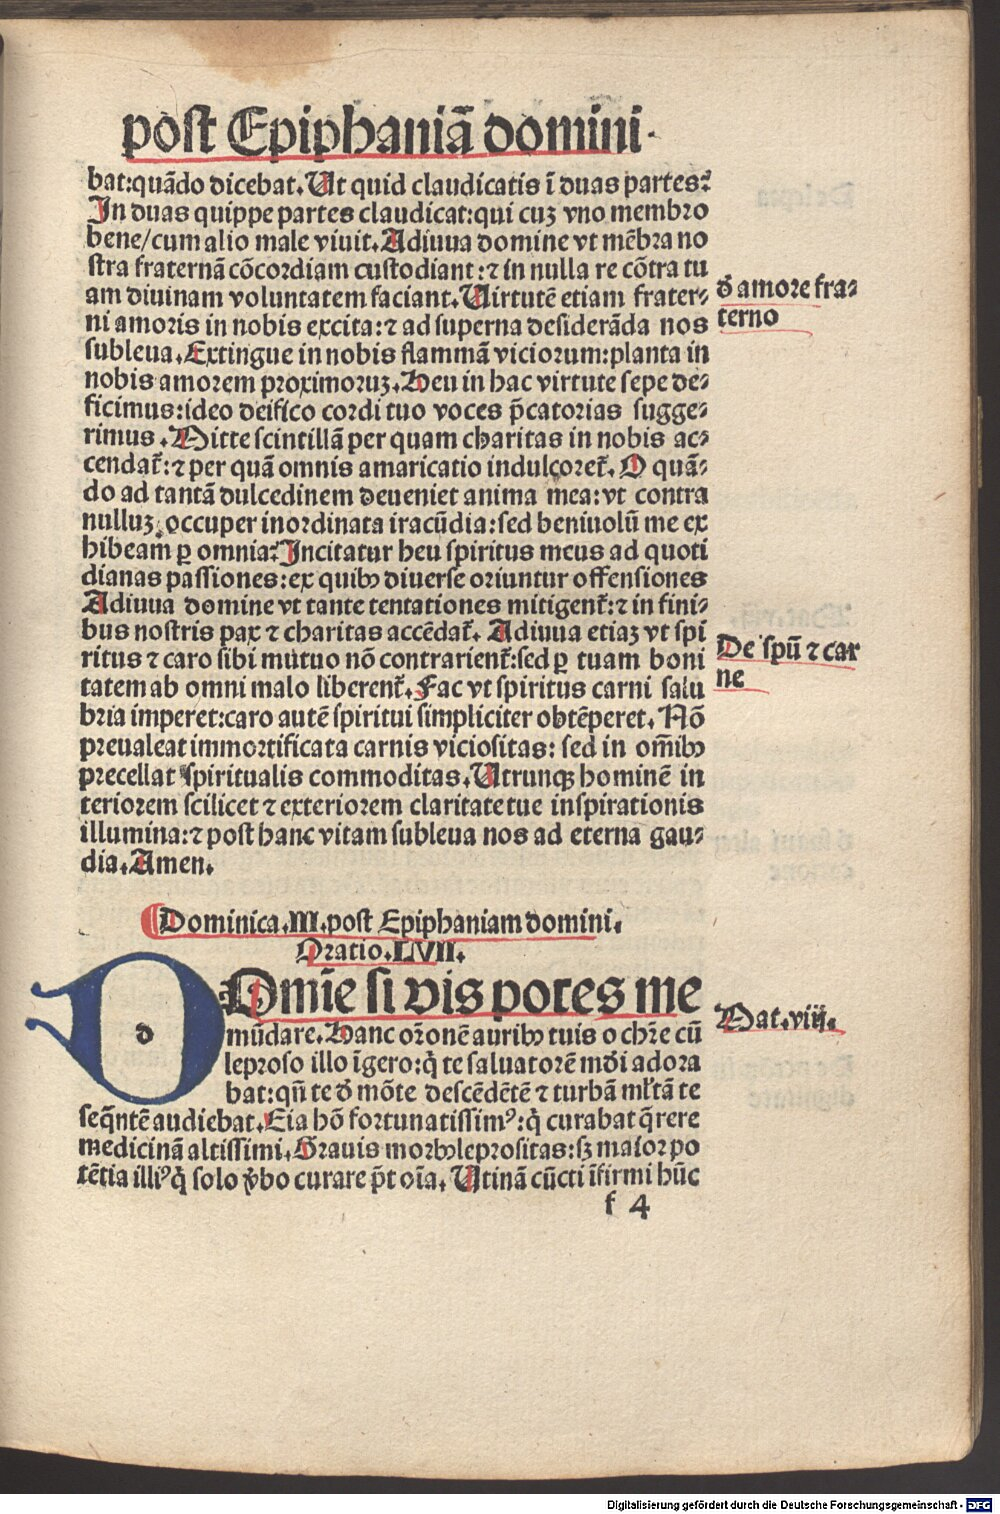 post Epiphaniā domini.
bat:quādo dicebat. Ut quid claudicatis ī duas partes?
In duas quippe partes claudicat:qui cuȝ vno membro
bene/cum alio male viuit. Adiuua domine vt mēbra no
stra fraternā cōcordiam custodiant:⁊ in nulla re cōtra tu
am diuinam voluntatem faciant. Uirtutē etiam frater⸗
ni amoris in nobis excita:⁊ ad superna desiderāda nos
subleua. Extingue in nobis flammā viciorum:planta in
nobis amorem proximoruȝ. Heu in hac virtute sepe de⸗
ficimus:ideo deifico cordi tuo voces p̄catorias sugge⸗
rimus. Mitte scintillā per quam charitas in nobis ac⸗
cendat᷑:⁊ per quā omnis amaricatio indulcoret᷑. O quā⸗
do ad tantā dulcedinem deueniet anima mea:vt contra
nulluȝ occuper inordinata iracūdia:sed beniuolū me ex
hibeam ꝑ omnia? Incitatur heu spiritus meus ad quoti
dianas passiones:ex quibꝫ diuerse oriuntur offensiones
Adiuua domine vt tante tentationes mitigent᷑:⁊ in fini⸗
bus nostris pax ⁊ charitas accēdat᷑. Adiuua etiaȝ vt spi
ritus ⁊ caro sibi mutuo nō contrarient᷑:sed ꝑ tuam boni
tatem ab omni malo liberent᷑. Fac vt spiritus carni salu
bria imperet:caro autē spiritui simpliciter obtēperet. Nō
preualeat immortificata carnis viciositas: sed in om̄ibꝫ
precellat spiritualis commoditas. Utrunqꝫ hominē in
teriorem scilicet ⁊ exteriorem claritate tue inspirationis
illumina:⁊ post hanc vitam subleua nos ad eterna gau⸗
dia. Amen.
đ amore fra⸗
terno
De spū ⁊ car
ne
Dominica.III.post Epiphaniam domini.
Oratio.LVII.
DOmīe si vis potes me
mūdare. Hanc or̄onē auribꝫ tuis o chr̄e cū
leproso illo īgero:q̇ te saluatorē mūdi adora
bat:qn̄ te đ mōte descēdētē ⁊ turbā ml̄tā te
seq̄ntē audiebat. Eia hō fortunatissimꝰ:q̇ curabat q̄rere
medicinā altissimi. Grauis morbꝫ leprositas:sȝ maior po
tētia illiꝰ q̇ solo v̄bo curare p̄t oīa. Utinā cūcti īfirmi hūc
Mat.viij.
f 4
Digitalisierung gefördert durch die Deutsche Forschungsgemeinschaft - DFG